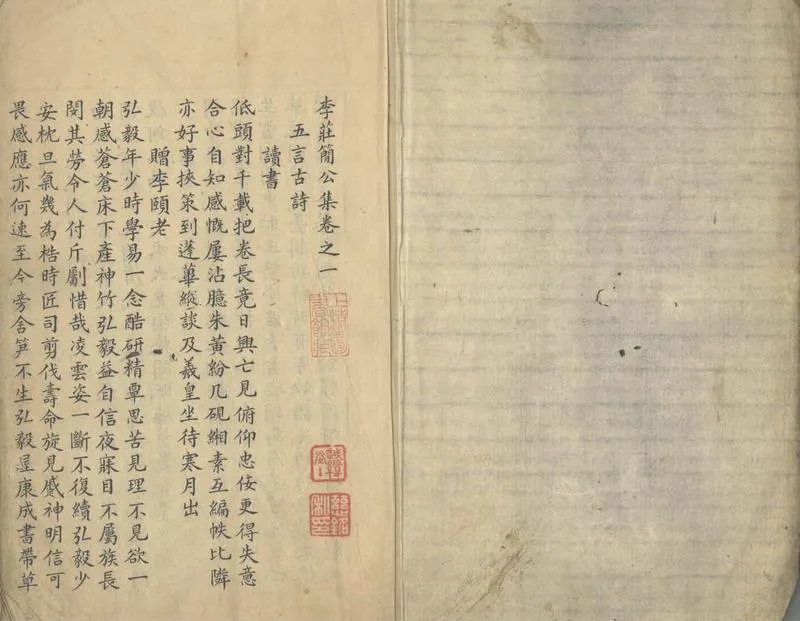 李莊簡公集卷之一
五言古詩
讀書
低頭對千載把卷長竟日興亡見俯仰忠佞更得失意
合心自知感慨屢沾臆朱黃紛几硯緗素互編帙比隣
亦好事挾策到蓬蓽縱談及羲皇坐待寒月出
贈李頤老
弘毅年少時學易一念酷研精覃思苦見理不見欲一
朝感蒼蒼床下產神竹弘毅益自信夜寐目不屬族長
閔其勞令人付斤劚惜哉凌雲姿一斷不復續弘毅少
安枕旦氣幾為梏時匠司剪伐壽命旋見蹙神明信可
畏感應亦何速至今旁舍笋不生弘毅是康成書帶草